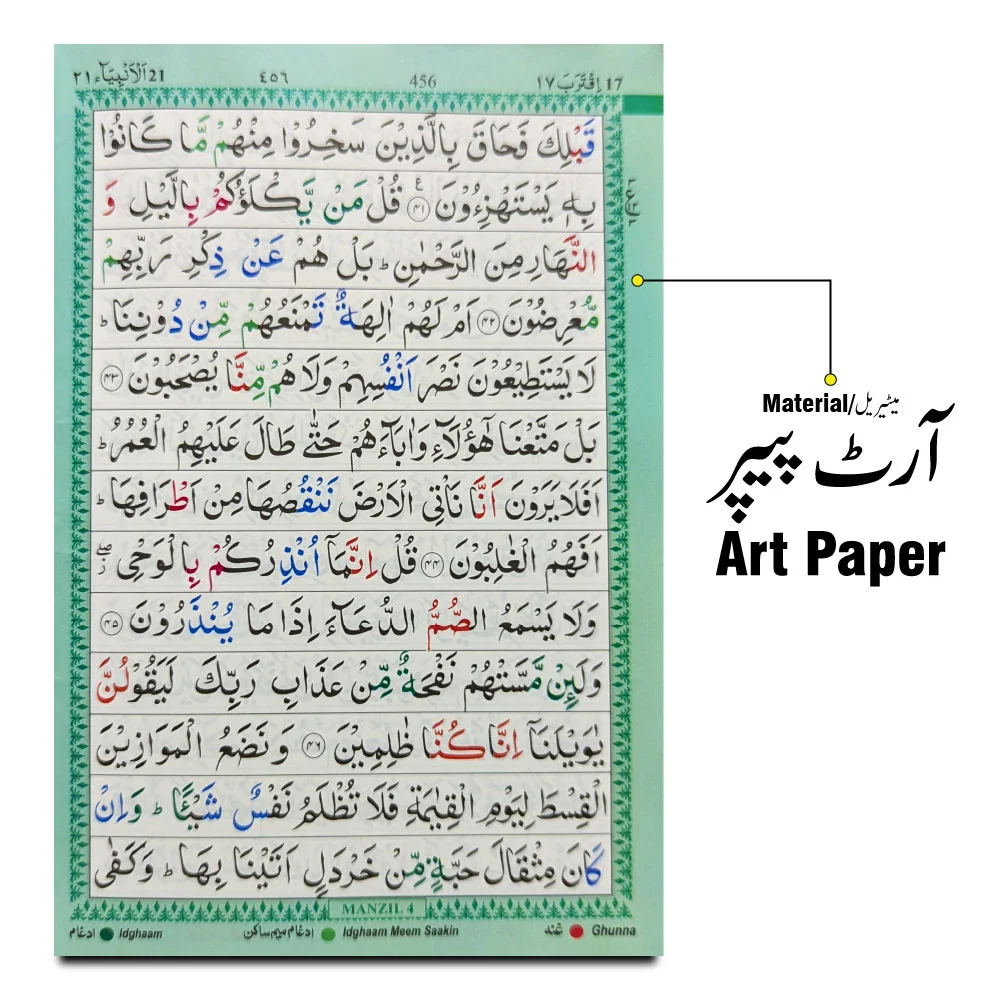 ٢١ اَلْاَنْۢبِيَآء 21 ٤٥٦ 456 ١٧ اِقْتَرَبَ 17
قَبْلِكَ فَحَاقَ بِالَّذِيْنَ سَخِرُوْا مِنْهُمْ مَّا كَانُوْا
بِهٖ يَسْتَهْزِءُوْنَ ﴿۴۱﴾ قُلْ مَنْ يَّكْلَؤُكُمْ بِالَّيْلِ وَ
النَّهَارِ مِنَ الرَّحْمٰنِ ؕ بَلْ هُمْ عَنْ ذِكْرِ رَبِّهِمْ
مُّعْرِضُوْنَ ﴿۴۲﴾ اَمْ لَهُمْ اٰلِهَةٌ تَمْنَعُهُمْ مِّنْ دُوْنِنَا ؕ
لَا يَسْتَطِيْعُوْنَ نَصْرَ اَنْفُسِهِمْ وَلَا هُمْ مِّنَّا يُصْحَبُوْنَ ﴿۴۳﴾
بَلْ مَتَّعْنَا هٰٓؤُلَآءِ وَاٰبَآءَهُمْ حَتّٰى طَالَ عَلَيْهِمُ الْعُمُرُ ؕ
اَفَلَا يَرَوْنَ اَنَّا نَاْتِى الْاَرْضَ نَنْقُصُهَا مِنْ اَطْرَافِهَا ؕ
اَفَهُمُ الْغٰلِبُوْنَ ﴿۴۴﴾ قُلْ اِنَّمَآ اُنْذِرُكُمْ بِالْوَحْىِ ۖ
وَلَا يَسْمَعُ الصُّمُّ الدُّعَآءَ اِذَا مَا يُنْذَرُوْنَ ﴿۴۵﴾
وَلَئِنْ مَّسَّتْهُمْ نَفْحَةٌ مِّنْ عَذَابِ رَبِّكَ لَيَقُوْلُنَّ
يٰوَيْلَنَآ اِنَّا كُنَّا ظٰلِمِيْنَ ﴿۴۶﴾ وَنَضَعُ الْمَوَازِيْنَ
الْقِسْطَ لِيَوْمِ الْقِيٰمَةِ فَلَا تُظْلَمُ نَفْسٌ شَيْـًٔا ؕ وَاِنْ
كَانَ مِثْقَالَ حَبَّةٍ مِّنْ خَرْدَلٍ اَتَيْنَا بِهَا ؕ وَكَفٰى
MANZIL 4
ادغام Idghaam ادغام میم ساکن Idghaam Meem Saakin غنه Ghunna
Material/میٹیریل
آرٹ پیپر
Art Paper